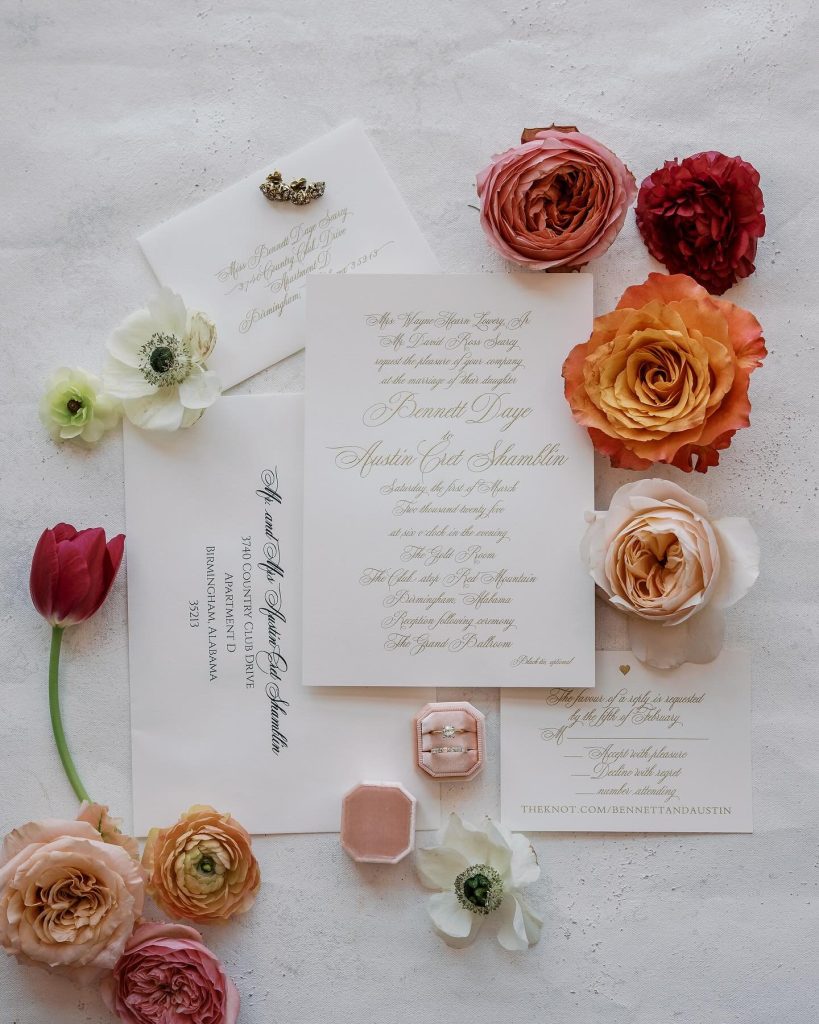 Miss Bennett Daye Searcy
3740 Country Club Drive
Apartment D
Birmingham, 35213
Mrs. Wayne Hearn Lowery, Jr.
Mr. David Ross Searcy
request the pleasure of your company
at the marriage of their daughter
Bennett Daye
&
Austin Cret Shamblin
Saturday, the first of March
Two thousand twenty five
at six o'clock in the evening
The Gold Room
The Club atop Red Mountain
Birmingham, Alabama
Reception following ceremony
The Grand Ballroom
Black tie optional
Mr. and Mrs. Austin Cret Shamblin
3740 Country Club Drive
Apartment D
Birmingham, Alabama
35213
The favour of a reply is requested
by the fifth of February
M
Accept with pleasure
Decline with regret
number attending
THEKNOT.COM/BENNETTANDAUSTIN